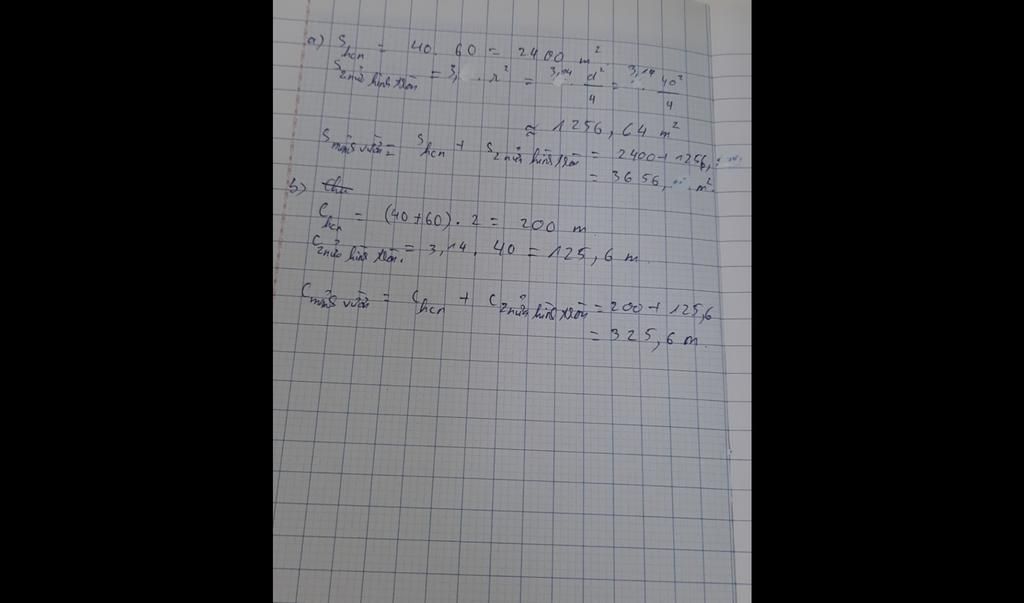 a) S hcn = 40. 60 = 2400 m²
S 2 nửa hình tròn = 3, . r² = 3,14 d²/4 = 3,14 . 40²/4
≈ 1256, 64 m²
S mảnh vườn = S hcn + S 2 nửa hình tròn = 2400 + 1256,
= 3656, m²
b)
C hcn = (40 + 60) . 2 = 200 m
C 2 nửa hình tròn. = 3,14 . 40 = 125, 6 m
C mảnh vườn = C hcn + C 2 nửa hình tròn = 200 + 125,6
= 325, 6 m.